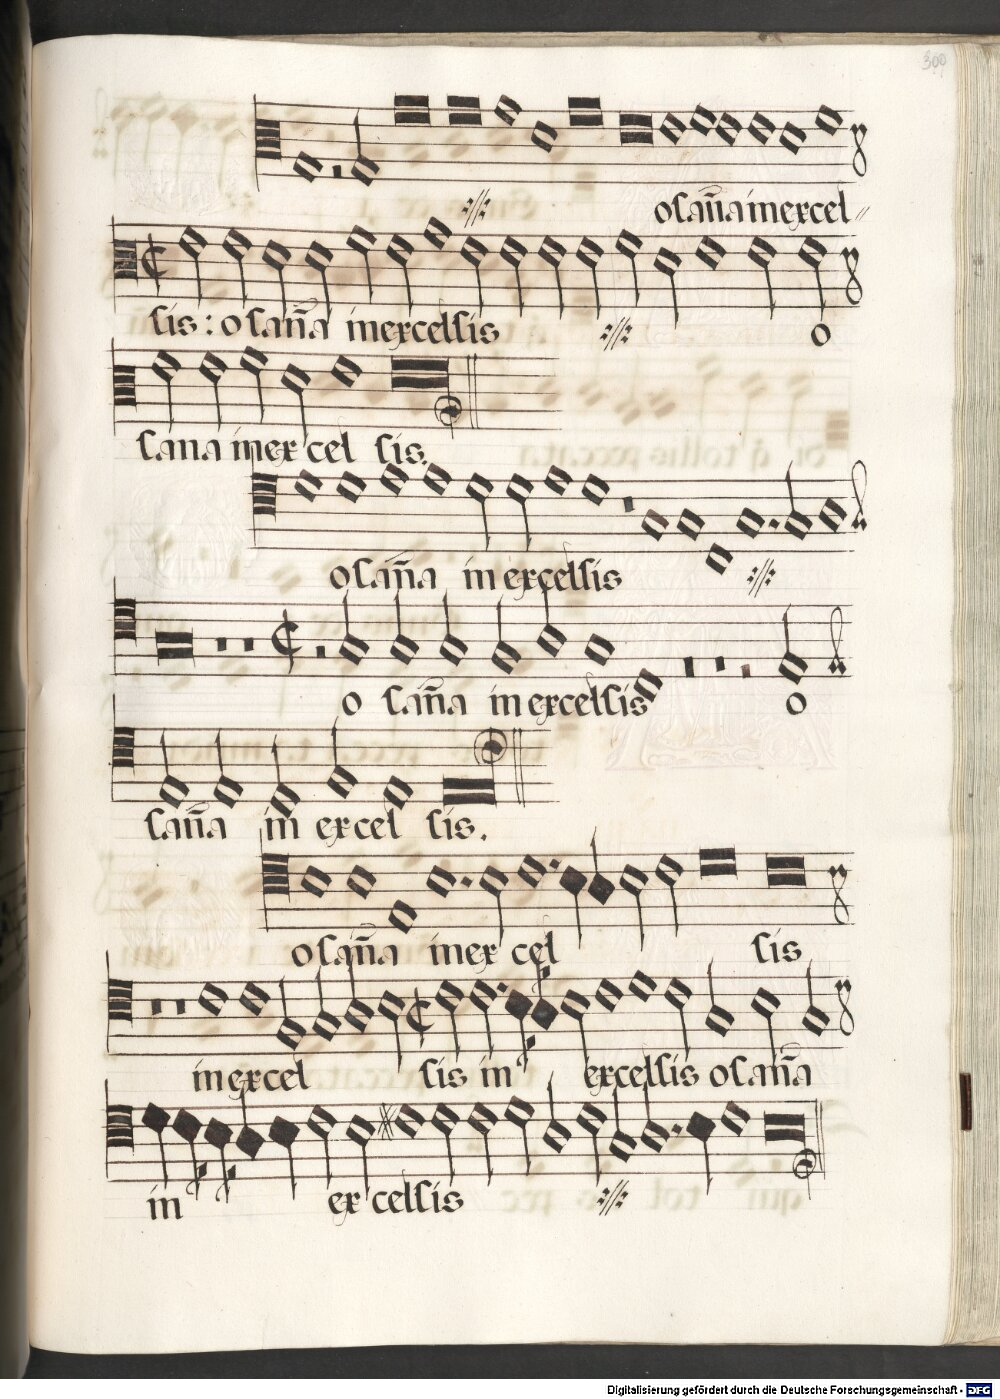 300
osan̄a in excel
sis: osan̄a in excelsis o
sana in excel sis.
osan̄a in excelsis
o san̄a in excelsis o
san̄a in excel sis.
osan̄a in excel sis
in excel sis in excelsis osan̄a
in excelsis
Digitalisierung gefördert durch die Deutsche Forschungsgemeinschaft - DFG